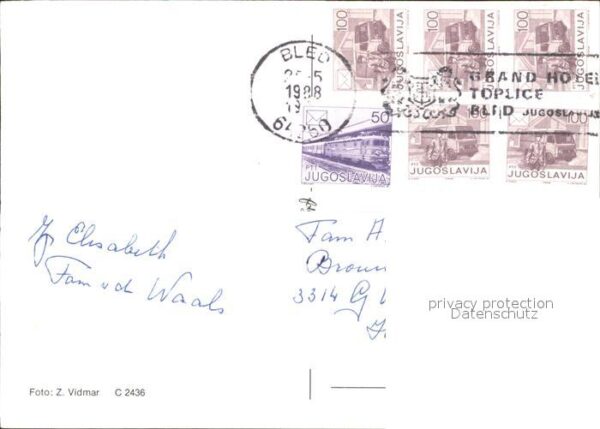 100 JUGOSLAVIJA
100 JUGOSLAVIJA
100 JUGOSLAVIJA
BLED
1988
GRAND HOTEL
TOPLICE
BLED JUGOSLAVIJA
50
PTT
JUGOSLAVIJA
100
PTT
JUGOSLAVIJA
100
PTT
JUGOSLAVIJA
Elisabeth
Fam v d Waals
Fam A.
3314 G
privacy protection
Datenschutz
Foto: Z. Vidmar C 2436